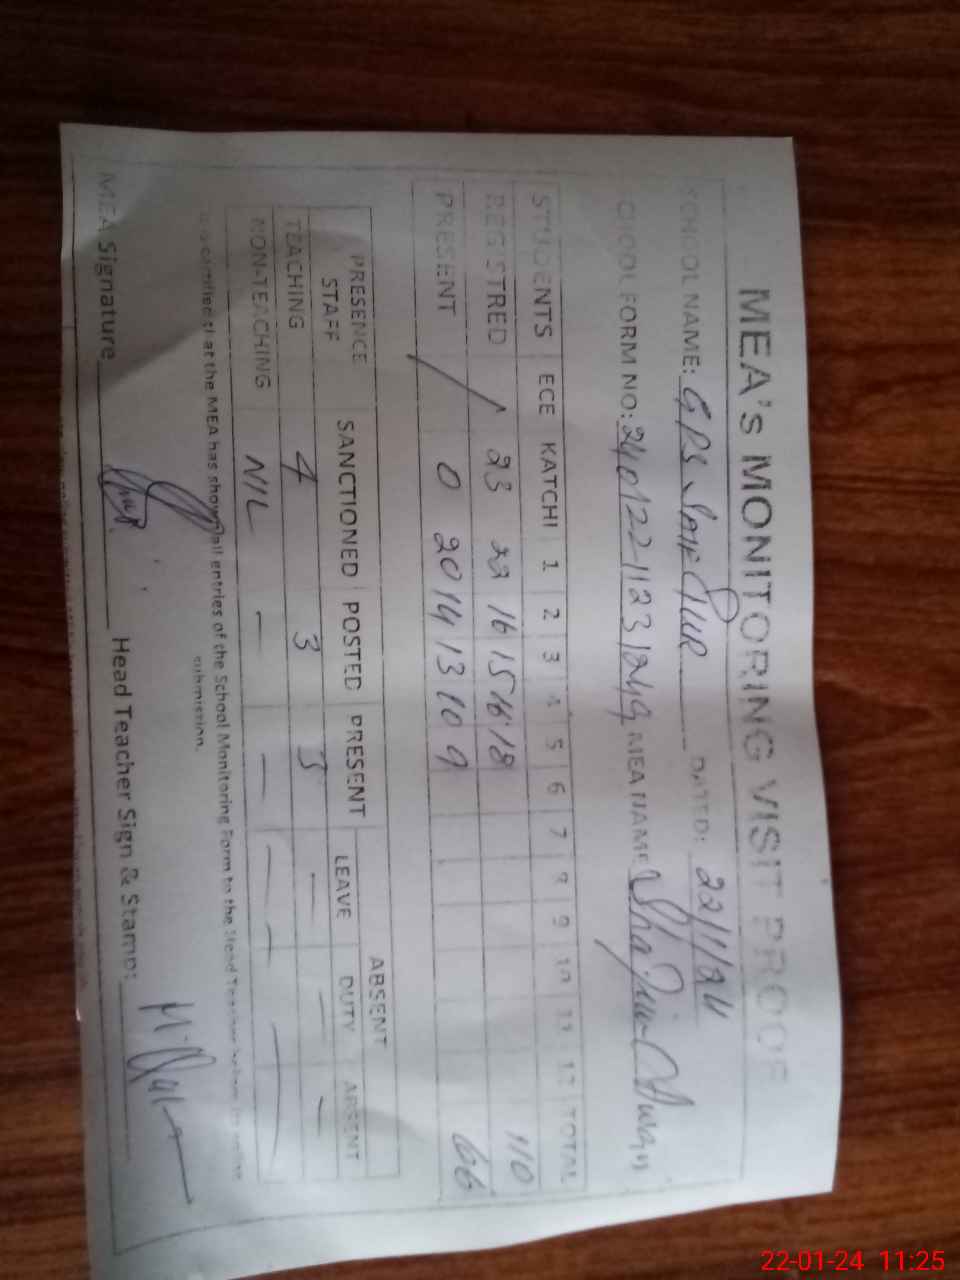 MEA'S MONITORING VISIT PROOF
SCHOOL NAME: GPS Saif Pur DATED: 22/1/24
SCHOOL FORM NO: MEA NAME
STUDENTS ECE KATCHI 1 2 3 4 5 6 7 8 9 10 11 12 TOTAL
REGISTRED / 23 22 16 15 16 18 110
PRESENT / 0 20 14 13 10 9 66
PRESENCE STAFF SANCTIONED POSTED PRESENT ABSENT
LEAVE DUTY ABSENT
TEACHING 4 3 3 — — —
NON-TEACHING NIL — — — — —
It is certified that the MEA has shown all entries of the School Monitoring Form to the Head Teacher before its
submission.
MEA Signature Head Teacher Sign & Stamp:
22-01-24 11:25